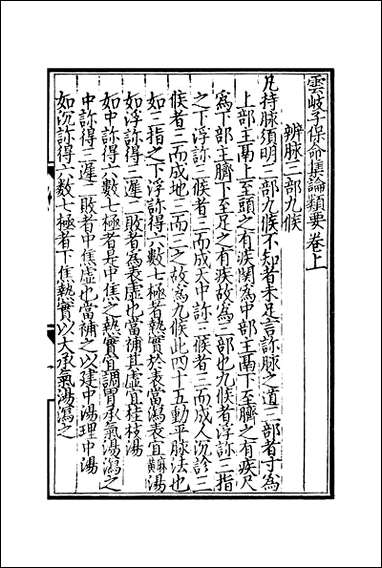 雲岐子保命集論類要卷上
辨脉三部九候
凡持脉須明三部九候不知者未足言診脉之道三部者寸為
上部主鬲上至頭之有疾関為中部主鬲下至臍之有疾尺
為下部主臍下至足之有疾故為三部也九候者浮診三指
之下浮診三候者三而成天中診三候者三而成人沉診三
候者三而成地三而三之故為九候此四十五動平脉法也
如三指之下浮診得六數七極者熱實於表當瀉表宜麻黃湯
如浮診得三遲二敗者為表虛也當補表之虛宜桂枝湯
如中診得六數七極者是中焦之熱實宜調胃承氣湯瀉之
中診得三遲二敗者中焦虛也當補之以建中湯理中湯
如沉診得六數七極者下焦熱實以大承氣湯瀉之